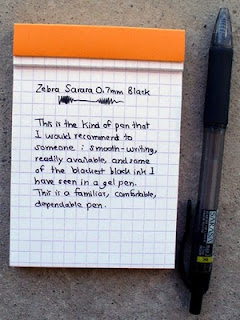 Zebra Sarara 0.7mm Black
This is the kind of pen that
I would recommend to
someone : smooth-writing,
readily available, and some
of the blackest black ink I
have seen in a gel pen.
This is a familiar, comfortable,
dependable pen.
SARASA